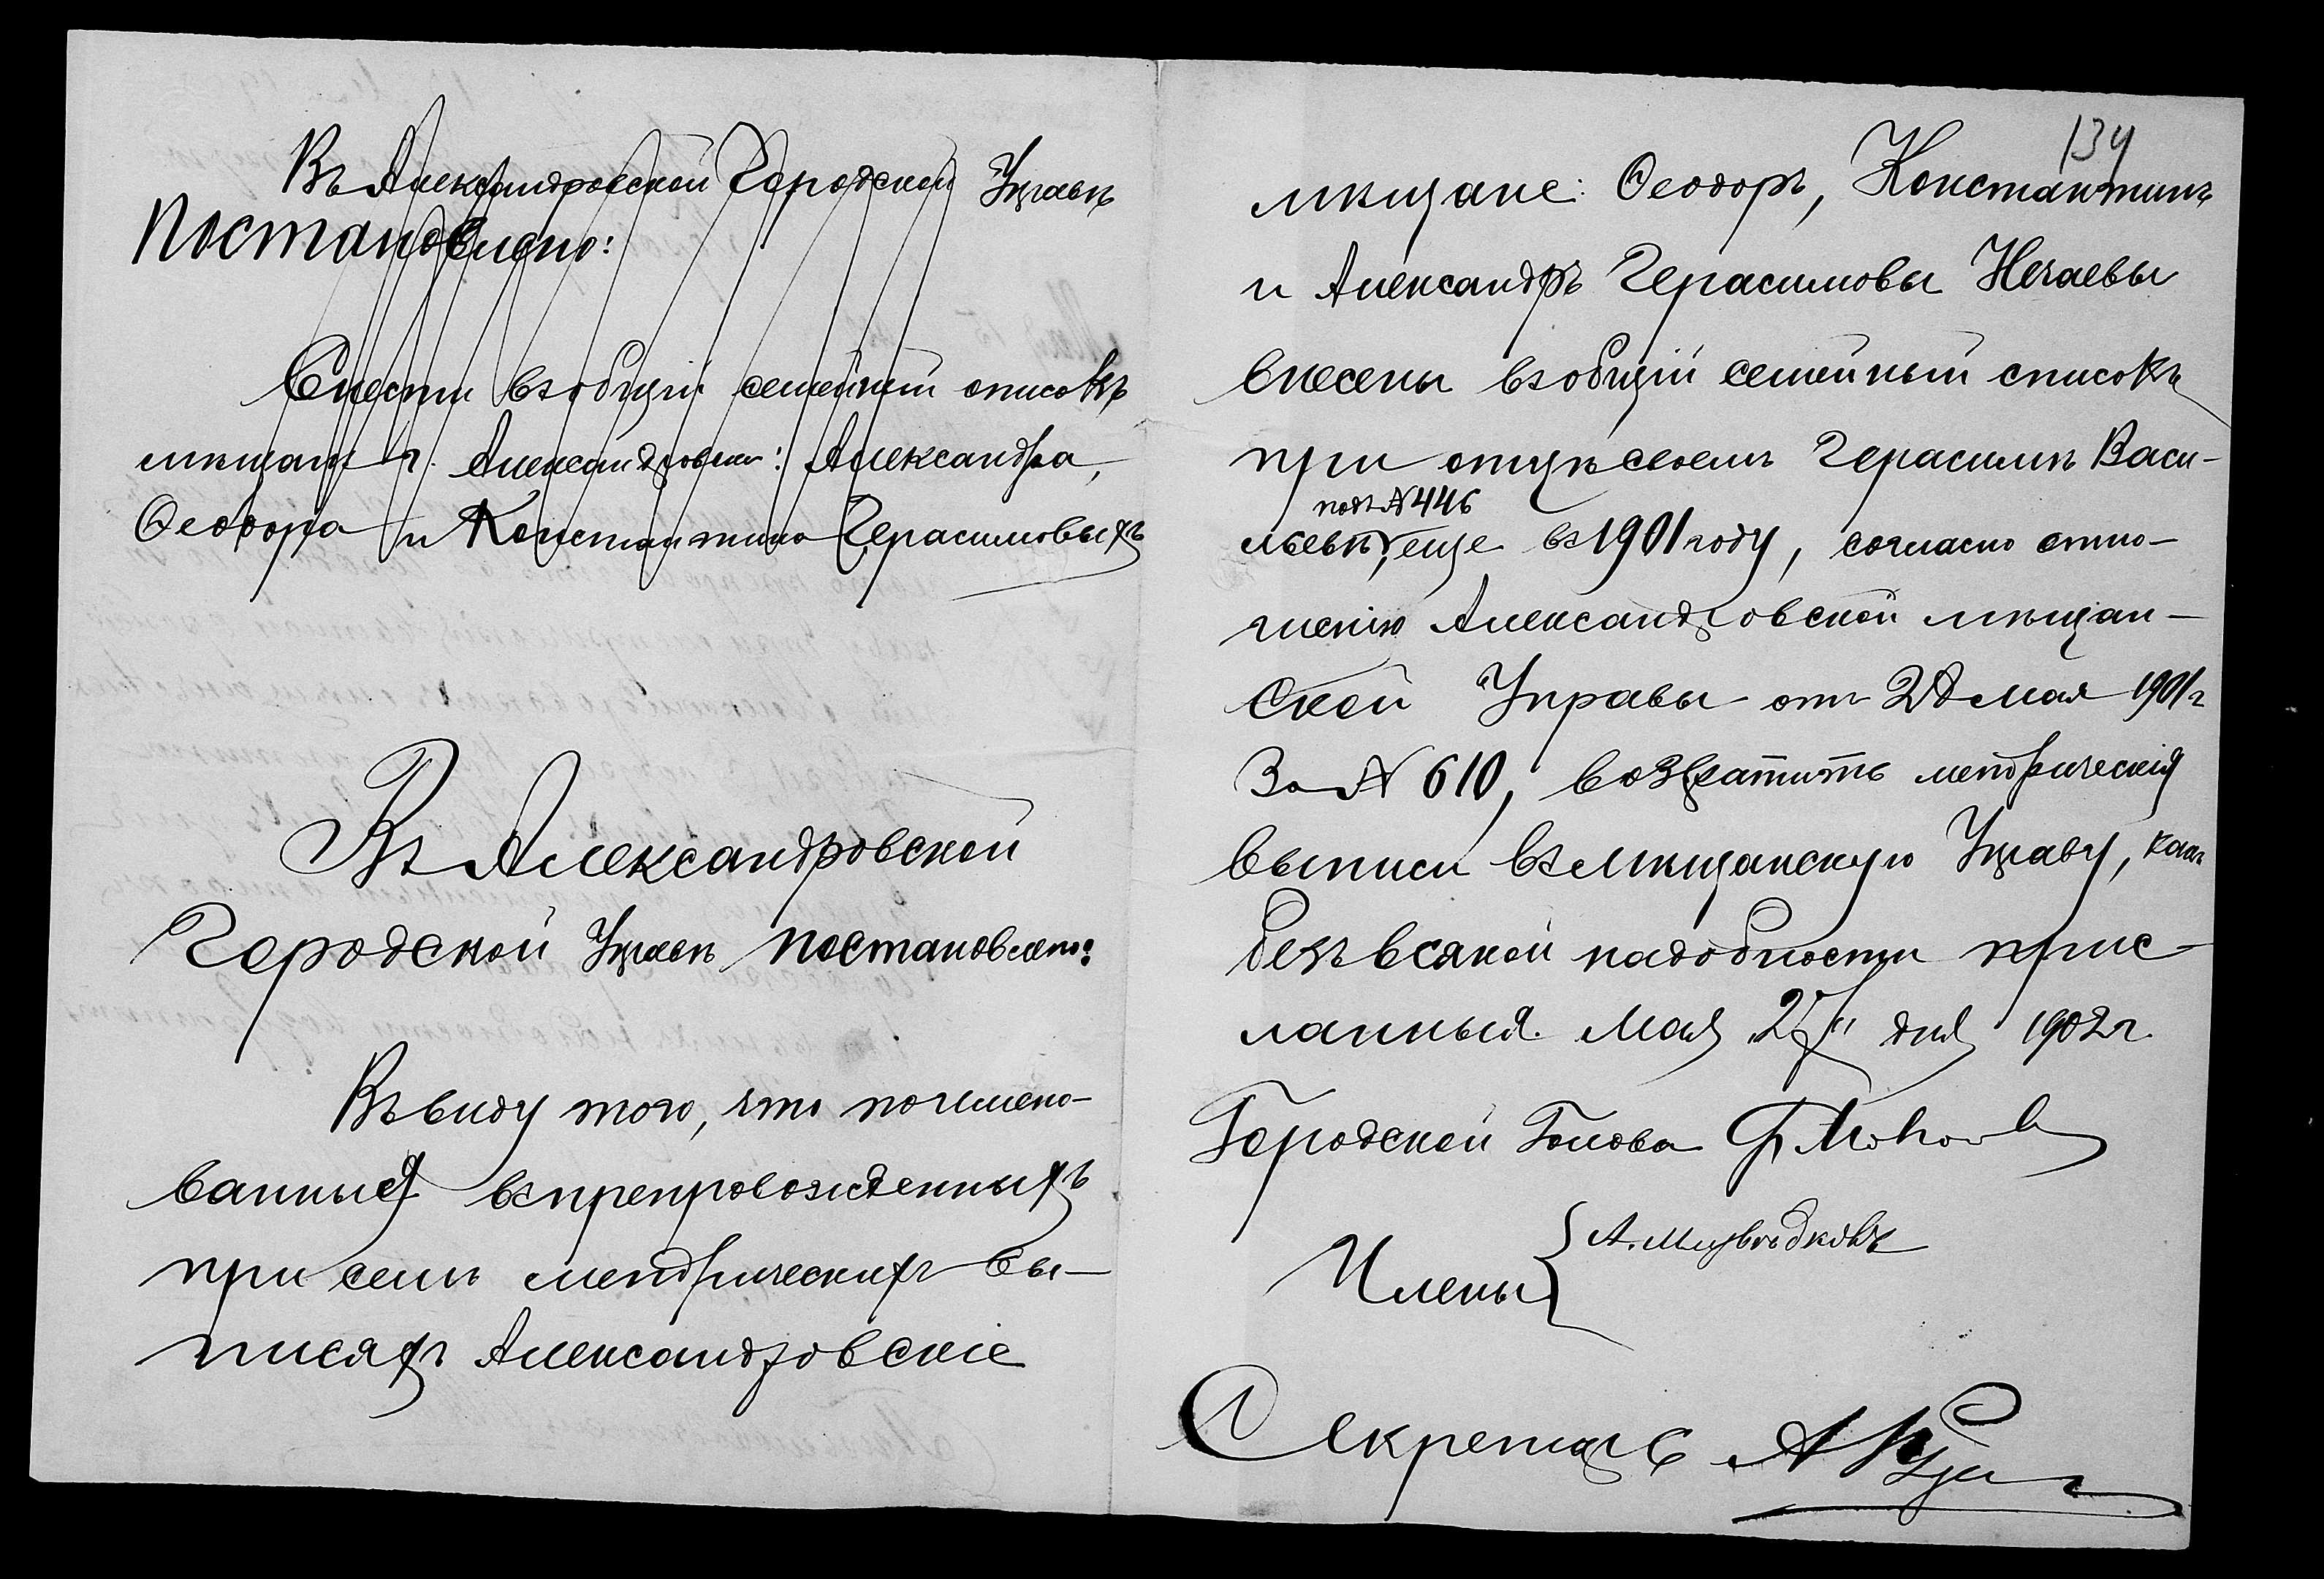 Въ Александровской Городской Управѣ
постановлено:
Внести въ общій семейный списокъ
мѣщанъ г. Александровска: Александра,
Ѳеодора и Константина Герасимовыхъ
Въ Александровской
Городской Управѣ постановлено:
Въ виду того, что поимено-
ванныя въ препровожденныхъ
при семъ метрическихъ вы-
писяхъ Александровскіе
134
мѣщане: Ѳеодоръ, Константинъ
и Александръ Герасимовы Нечаевы
внесены въ общій семейный списокъ
при отцѣ своемъ Герасимѣ Васи-
подъ № 446
льевѣ, еще въ 1901 году, согласно отно-
шенію Александровской мѣщан-
ской Управы отъ 28 мая 1901 г
за № 610, возвратить метрическія
выписи въ мѣщанскую Управу, какъ
безъ всякой надобности прис-
ланныя. Мая „27" дня 1902 г.
Городской Голова
Члены
Секретарь